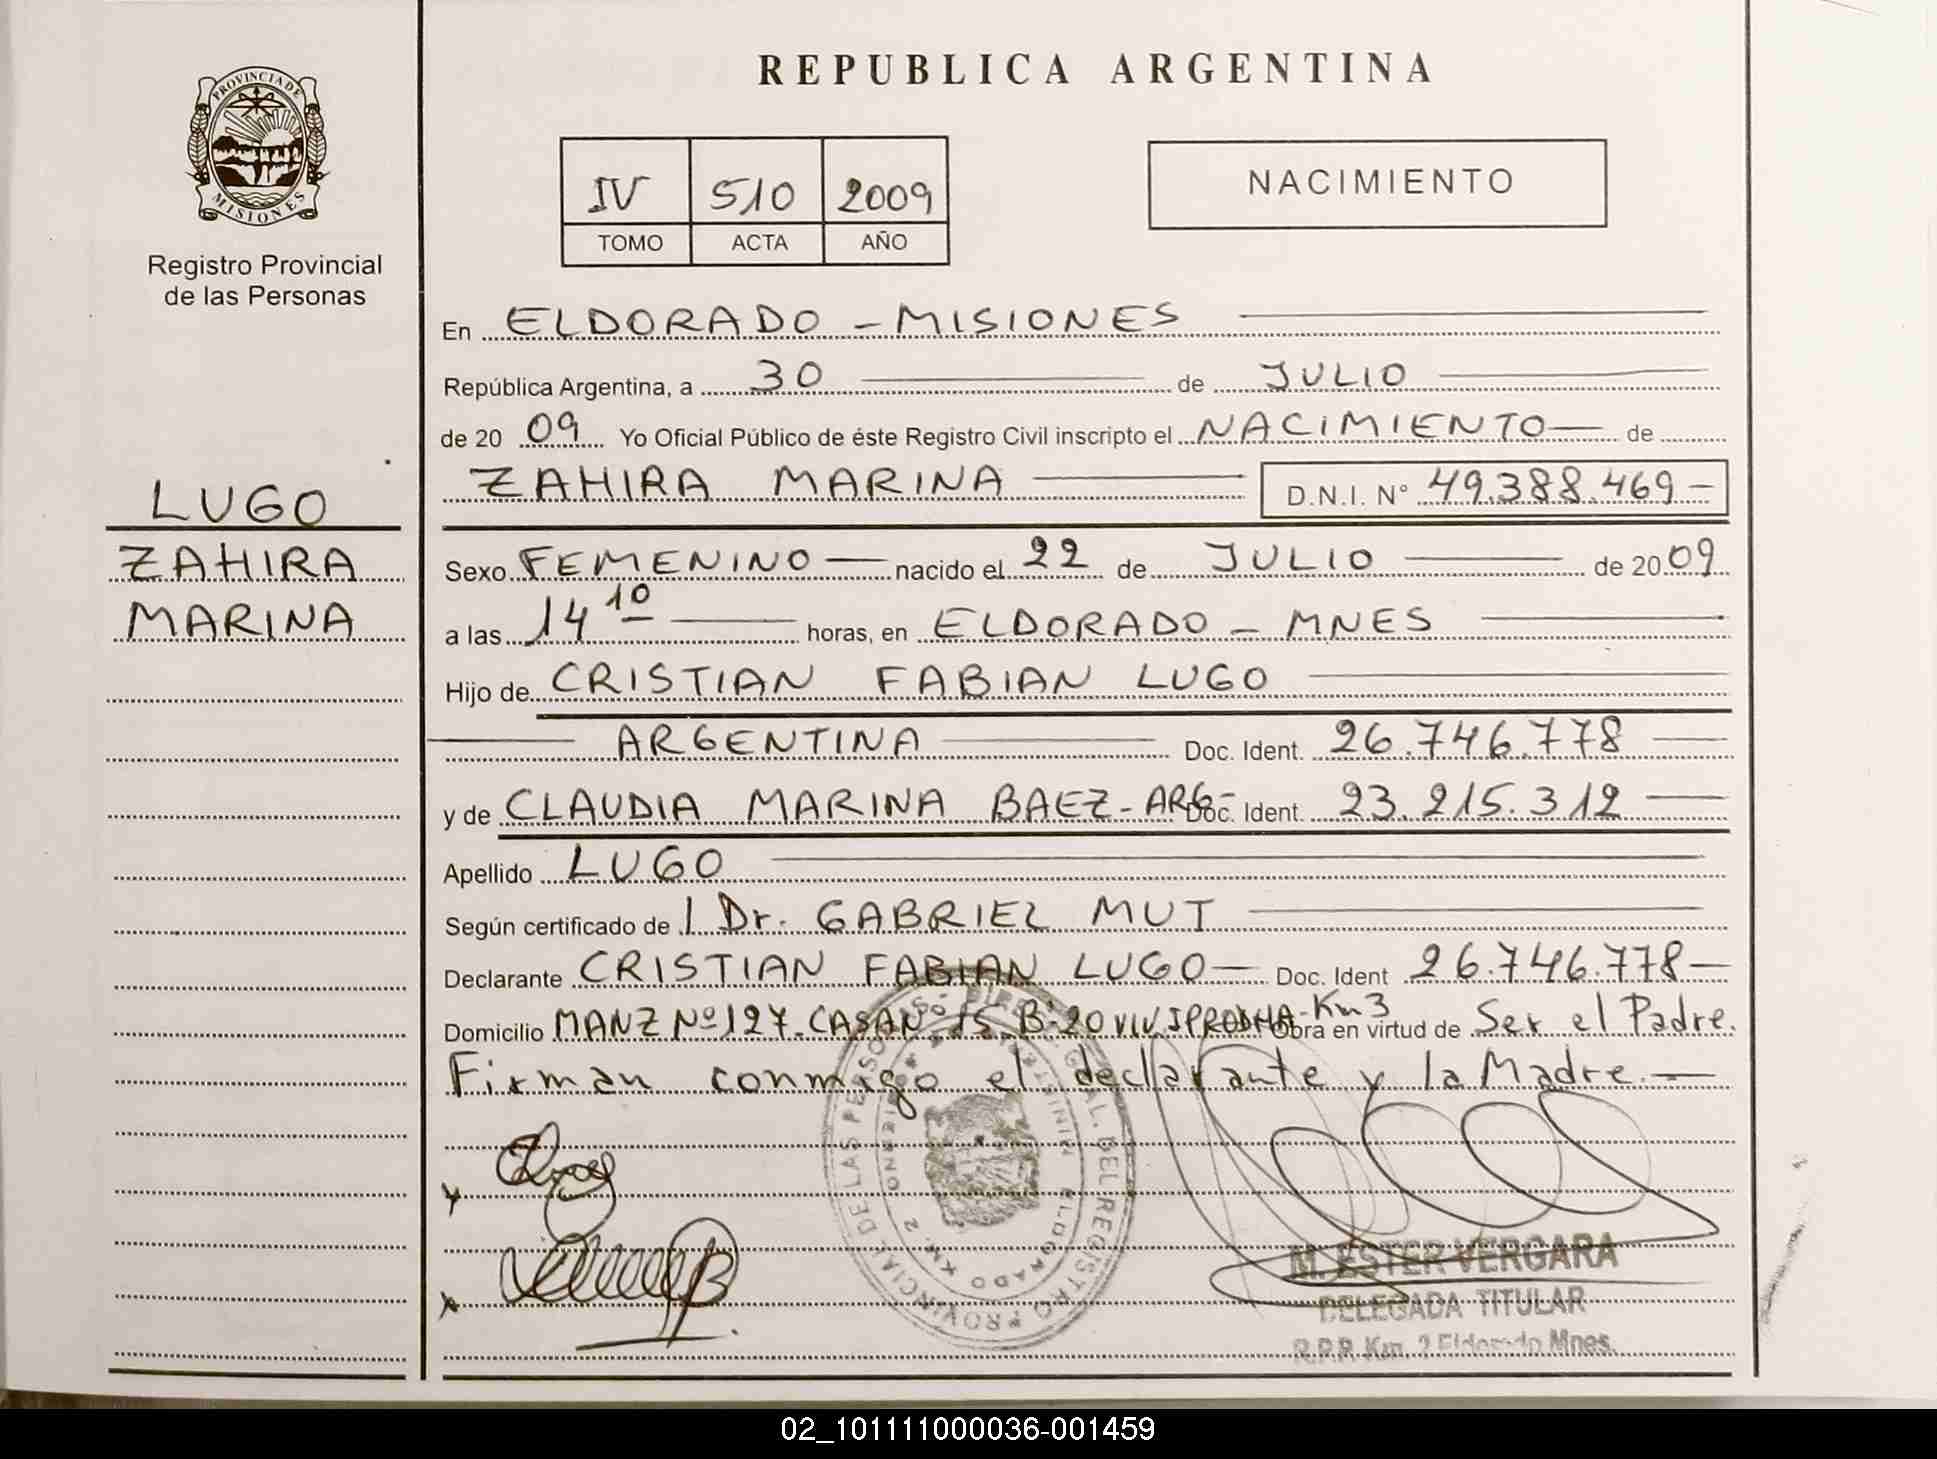 REPUBLICA ARGENTINA
PROVINCIA DE
MISIONES
Registro Provincial
de las Personas
IV 510 2009
TOMO ACTA AÑO
NACIMIENTO
En ELDORADO - MISIONES
República Argentina, a 30 de JULIO
de 20 09 Yo Oficial Público de éste Registro Civil inscripto el NACIMIENTO de
ZAHIRA MARINA D.N.I. N° 49.388.469-
LUGO
ZAHIRA
MARINA
Sexo FEMENINO nacido el 22 de JULIO de 2009
a las 14 10 horas, en ELDORADO - MNES
Hijo de CRISTIAN FABIAN LUGO
ARGENTINA Doc. Ident. 26.746.778
y de CLAUDIA MARINA BAEZ-ARG- Doc. Ident. 23.215.312
Apellido LUGO
Según certificado de l Dr. GABRIEL MUT
Declarante CRISTIAN FABIAN LUGO Doc. Ident 26.746.778
Domicilio MANZ Nº 127. CASA Nº 15. Bº 20 VIV. IPRODHA-Km 3 Obra en virtud de Ser el Padre.
Firman conmigo el declarante y la Madre.
REGISTRO PROVINCIAL DE LAS PERSONAS
ELDORADO KM. 2
M. ESTER VERGARA
DELEGADA TITULAR
R.P.P. Km. 2 Eldorado Mnes.
02_101111000036-001459